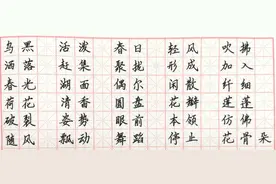 乌黑 活泼 春日 轻风 吹拂
洒落 赶集 聚拢 形成 加入
春光 湖面 偶尔 闲散 纤细
荷花 清香 圆盘 花瓣 莲蓬
破裂 姿势 眼前 本领 仿佛
随风 飘动 舞蹈 停止 花骨朵